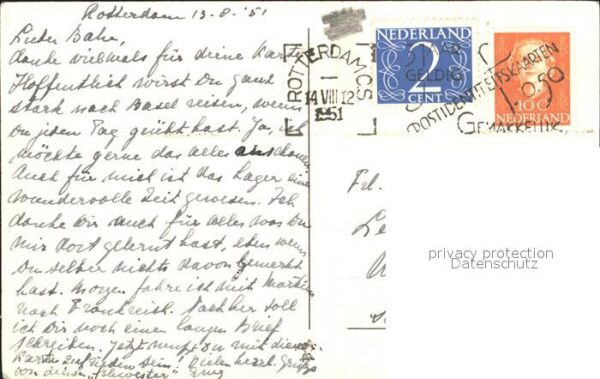 Rotterdam 13-8-'51
danke vielmals für deine Karte
Hoffentlich wirst Du ganz
stark nach Basel reisen, wenn
Du jeden Tag geübt hast. Ja, ich
möchte gerne das alles anschauen
Auch für mich ist das Lager eine
wundervolle Zeit gewesen. Ich
danke Dir auch für alles was Du
mir dort gelernt hast, eben wenn
Du selber nichts davon gemerkt
hast. Morgen fahre ich mit
nach Frankreich. Nachher soll
ich Dir noch einen langen Brief
schreiben. Jetzt musst Du mit dieser
Karte zufrieden sein. Vielen herzl.
von deiner "Schwester"
ROTTERDAM CS
14 VIII 12
1951
NEDERLAND
2
CENT
GELDIG
POSTIDENTITEITSKAARTEN
0.50
GEMAKKELIJK
10 C
NEDERLAND
Frl.
privacy protection
Datenschutz